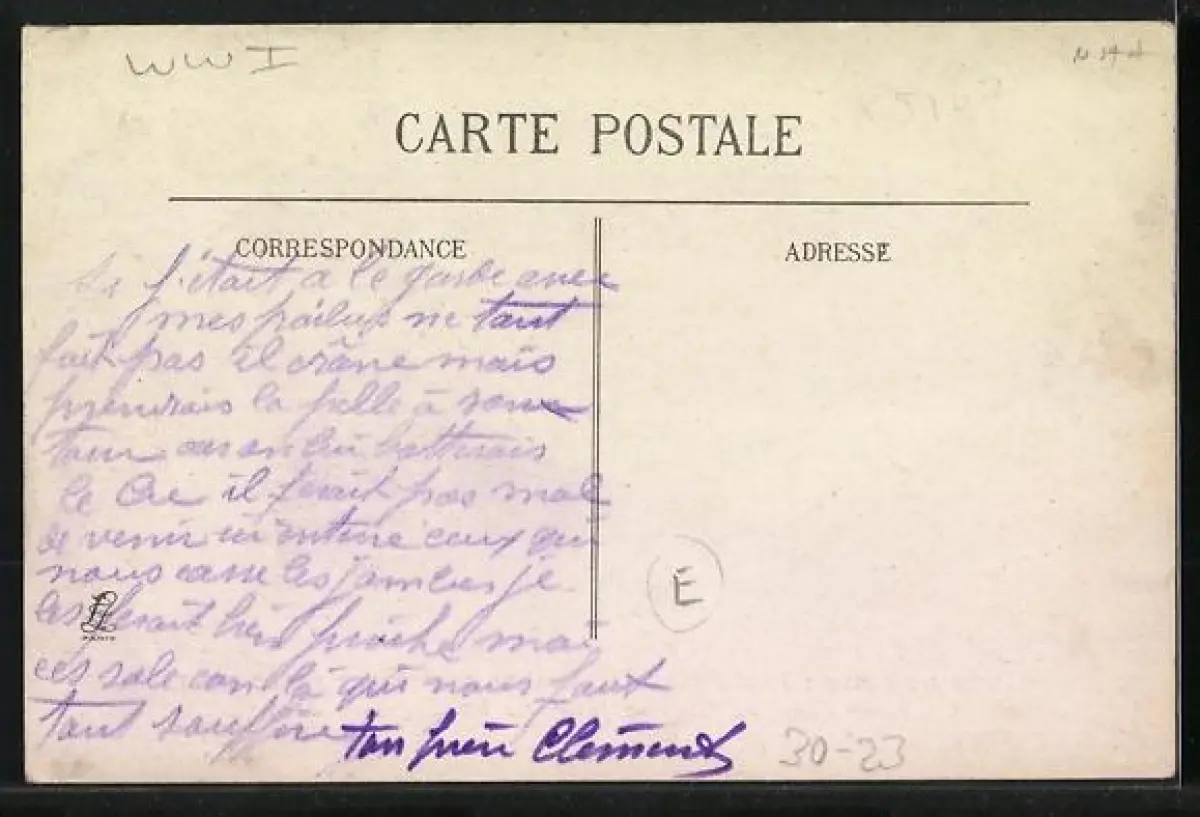 WWI
CARTE POSTALE
CORRESPONDANCE
ADRESSE
Si j'était a le garde avec
mes poilus ne tant
fait pas il crâne mais
prendrais la pelle à son
tour on lui batterais
le il ferait pas mal
de venir ici ceux qui
nous casse les jambes je
les ferait bien
ces sale con là qui nous faut
tant souffrire ton frère Clément
E
LL
PARIS
30-23